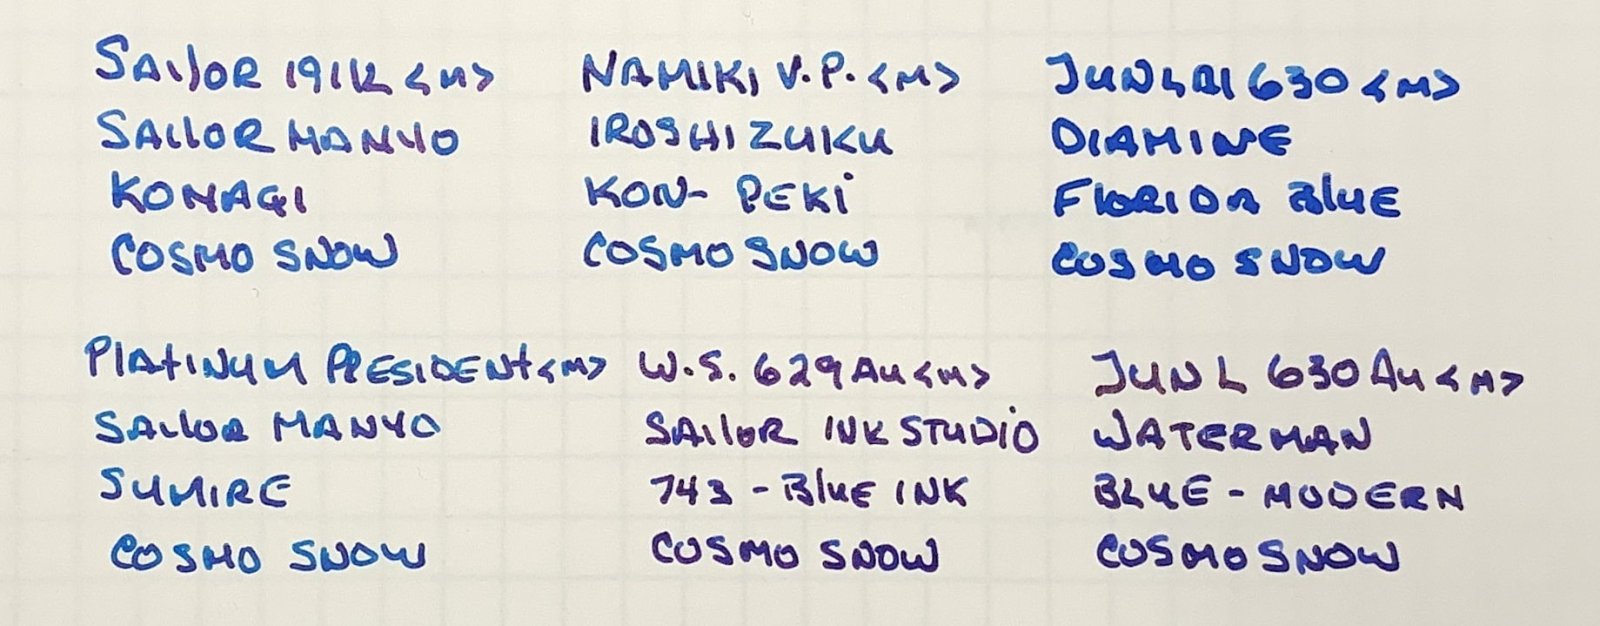 SAilOR 1911L <M>
SAilOR MANYO
KONAGI
COSMO SNOW
NAMIKI V.P. <M>
IROSHIZUKU
KON-PEKi
COSMO SNOW
JUNLAI 630 <M>
DIAMINE
FlORIDA BlUE
COSMO SNOW
PlAtINUM PRESIDENt <M>
SAilOR MANYO
SUMIRE
COSMO SNOW
W.S. 629 Au <M>
SAilOR INK STUDiO
743 - BlUE INK
COSMO SNOW
JUNL 630 Au <M>
WATERMAN
BLUE - MODERN
COSMO SNOW